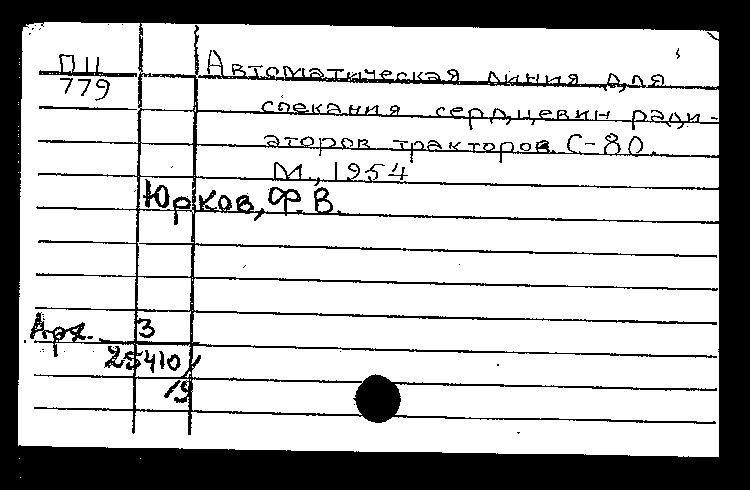 П11
779
Автоматическая линия для
спекания сердцевин ради-
аторов тракторов С-80.
М., 1954
Юрков, Ф.В.
Арх. 3
25410/
19